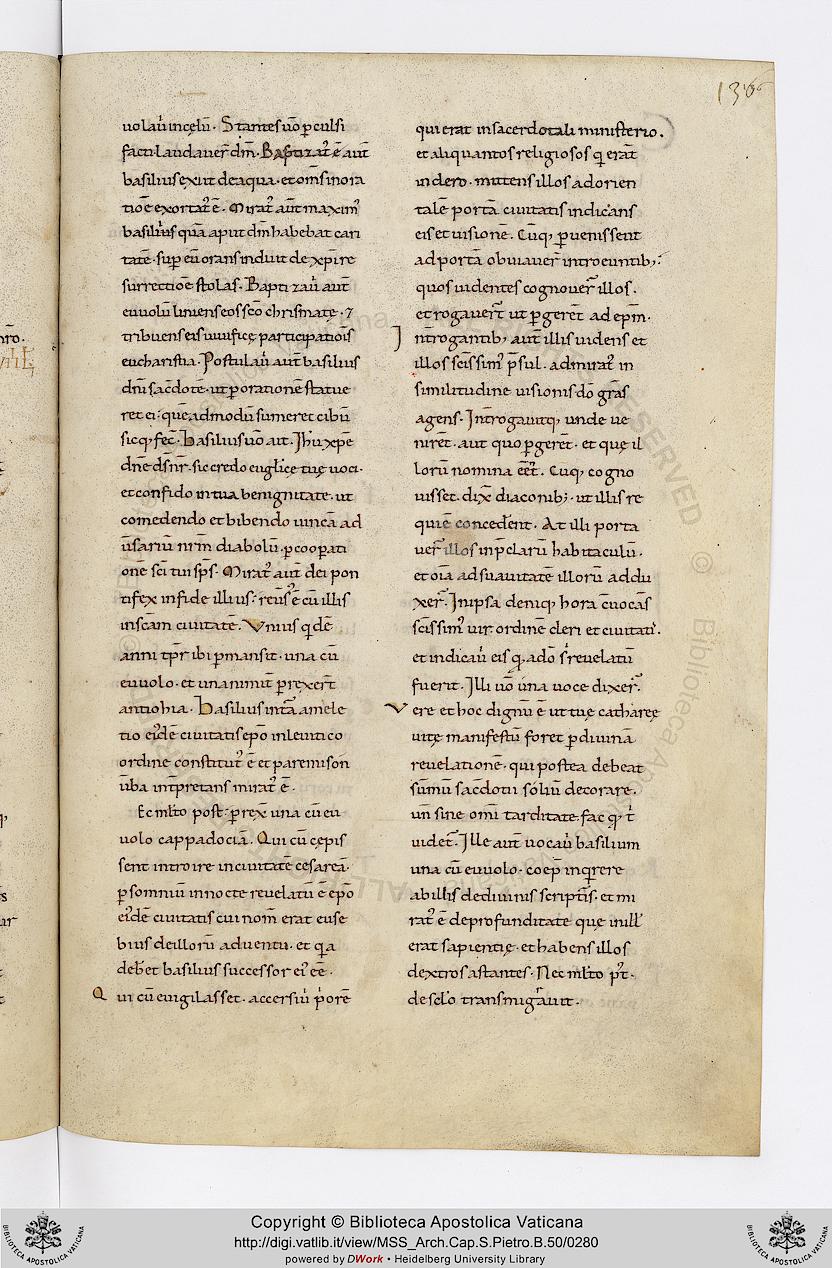 136
uolau̅ incęlu̅. Stantes uo̅ ꝑculsi
facti laudauer̅ dm̅. Baptizat᷒ ē aut̅
basilius exiit de aqua. et om̅s in ora
tio̅e exortat᷒ ē. Mirat᷒ aut̅ maxim᷒
basilius qua̅ aput dm̅ habebat cari
tate̅. sup eu̅ orans induit de xp̅i re
surrectio̅e stolas. Baptizau̅ aut̅
euuolu̅ liniens eos sc̅o chrismate. ⁊
tribuens eis uiuificę participatio̅is
eucharistia. Postulau̅ aut̅ basilius
dn̅i sac̅dote̅. ut ꝑ oratione̅ statue
ret ei. que̅admodu̅ sumeret cibu̅
sicq, fec̅. Basilius uo̅ ait. Ih̅u xp̅e
dn̅e d̅s nr̅. sic credo euglicę tuę uoci.
et confido in tua benignitate. ut
comedendo et bibendo uinca̅ ad
u̅sariu̅ nrm̅ diabolu̅. ꝑ cooperati
one̅ sc̅i tui sp̅s. Mirat᷒ aut̅ dei pon
tifex in fide illius. reus᷒ ē cu̅ illis
in sc̅am ciuitate̅. Vnius q̅de̅
anni tp̅r ibi ꝑmansit. una cu̅
euuolo. et unanimit̅ ꝑrexer̅t
antiohia. Basilius inta̅ a mele
tio ei᷒de̅ ciuitatis ep̅o in leuitico
ordine constitut᷒ ē et paremison
u̅ba int̅pretans mirat᷒ ē.
Ec m̅lto post. ꝑrex̅ una cu̅ eu
uolo cappadocia̅. Qui cu̅ cępis
sent introire in ciuitate̅ cesarea̅.
ꝑ somniu̅ in nocte reuelatu̅ ē ep̅o
ei᷒de̅ ciuitatis cui nom̅ erat euse
bius de illoru̅ aduentu. et q̅a
debet basilius successor ei᷒ ēē.
Qui cu̅ euigilasset. accersiu̅ p̅ore̅
qui erat in sacerdotali ministerio.
et aliquantos religiosos q̅ era̅t
in clero. mittens illos ad orien
tale̅ porta̅ ciuitatis indicans
eis et uisione̅. Cu̅q, ꝑuenissent
ad porta̅ obuiauer̅ introeuntib;
quos uidentes cognouer̅ illos.
et rogauer̅t ut ꝑgere̅t ad ep̅m.
Int̅rogantib; aut̅ illis uidens et
illos sc̅issim᷒ p̅sul. admirat᷒ in
similitudine uisionis do̅ gra̅s
agens. Int̅rogauitq, unde ue
nire̅t. aut quo ꝑgere̅t. et quę il
loru̅ nomina eēt. Cu̅q, cogno
uisset. dix̅ diaconib; ut illis re
quie̅ concederent. At illi porta
uer̅ illos in p̅claru̅ habitaculu̅.
et oi̅a ad suauitate̅ illoru̅ addu
xer̅. In ipsa deniq, hora c̅uoca̅s
sc̅issim᷒ uir ordine̅ cleri et ciuitati᷒.
et indicau̅ eis q, a do̅ s̅ reuelatu̅
fuerit. Illi uo̅ una uoce dixer̅.
Vere et hoc dignu̅ ē ut tuę catharęę
uitę manifestu̅ foret ꝑ diuina̅
reuelatione̅. qui postea debeat
su̅mu̅ sac̅dotii soliu̅ decorare.
un̅ sine omi̅ tarditate. fac q, t̅
uidet̅. Ille aut̅ uocau̅ basilium
una cu̅ euuolo. coep̅ inq̅rere
ab illis de diuinis scriptis. et mi
rat᷒ ē de profunditate quę in ill᷒
erat sapientię. et habens illos
dextros astantes. Nec m̅lto p᷒t.
de sc̅lo transmigrauit.
Copyright © Biblioteca Apostolica Vaticana
http://digi.vatlib.it/view/MSS_Arch.Cap.S.Pietro.B.50/0280
powered by DWork • Heidelberg University Library
BIBLIOTECA APOSTOLICA VATICANA